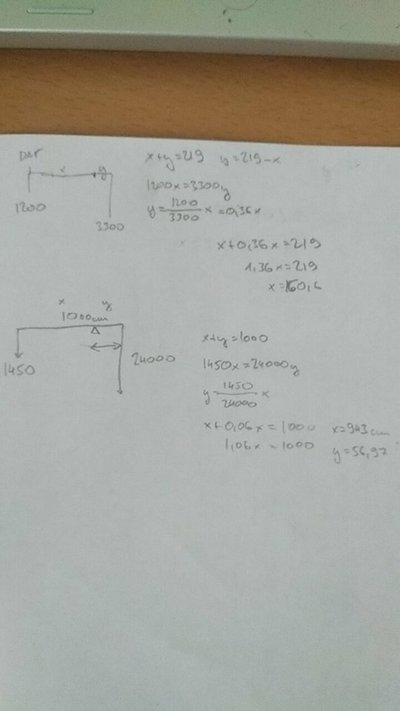 DAF
x y
1200
3300
x+y=219 y=219-x
1200x=3300y
y=1200/3300 x=0,36x
x+0,36x=219
1,36x=219
x=160,6
x y
1000cm
1450
24000
x+y=1000
1450x=24000y
y=1450/24000 x
x+0,06x=1000 x=943cm
1,06x=1000 y=56,97